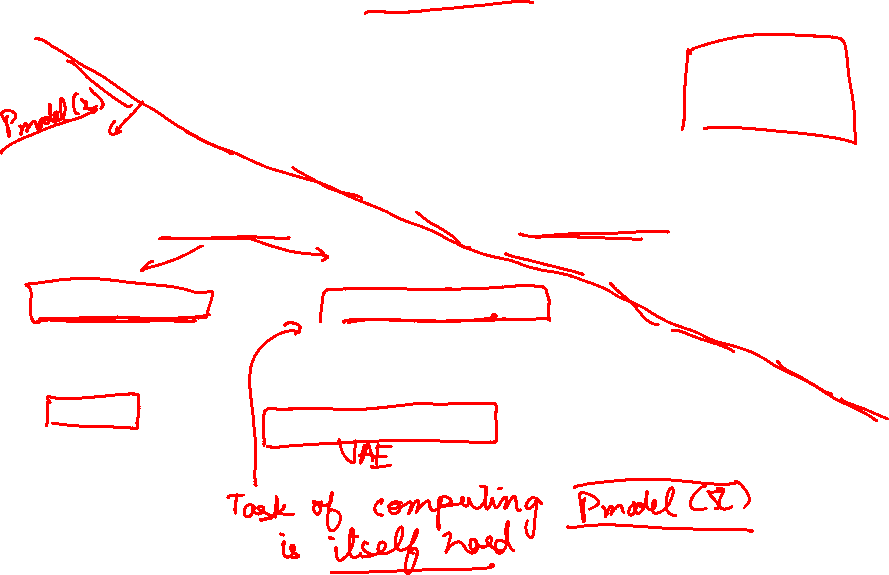 Pmodel(x)
VAE
Task of computing Pmodel(x)
is itself hard